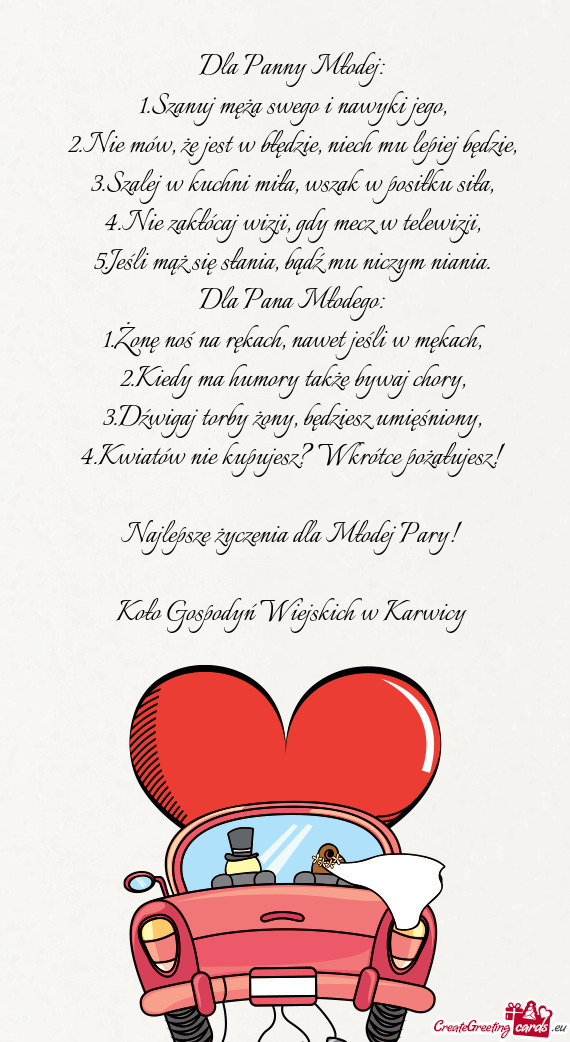 Dla Panny Młodej:
1.Szanuj męża swego i nawyki jego,
2.Nie mów, że jest w błędzie, niech mu lepiej będzie,
3.Szalej w kuchni miła, wszak w posiłku siła,
4.Nie zakłócaj wizji, gdy mecz w telewizji,
5.Jeśli mąż się słania, bądź mu niczym niania.
Dla Pana Młodego:
1.Żonę noś na rękach, nawet jeśli w mękach,
2.Kiedy ma humory także bywaj chory,
3.Dźwigaj torby żony, będziesz umięśniony,
4.Kwiatów nie kupujesz? Wkrótce pożałujesz!
Najlepsze życzenia dla Młodej Pary!
Koło Gospodyń Wiejskich w Karwicy
CreateGreeting cards .eu